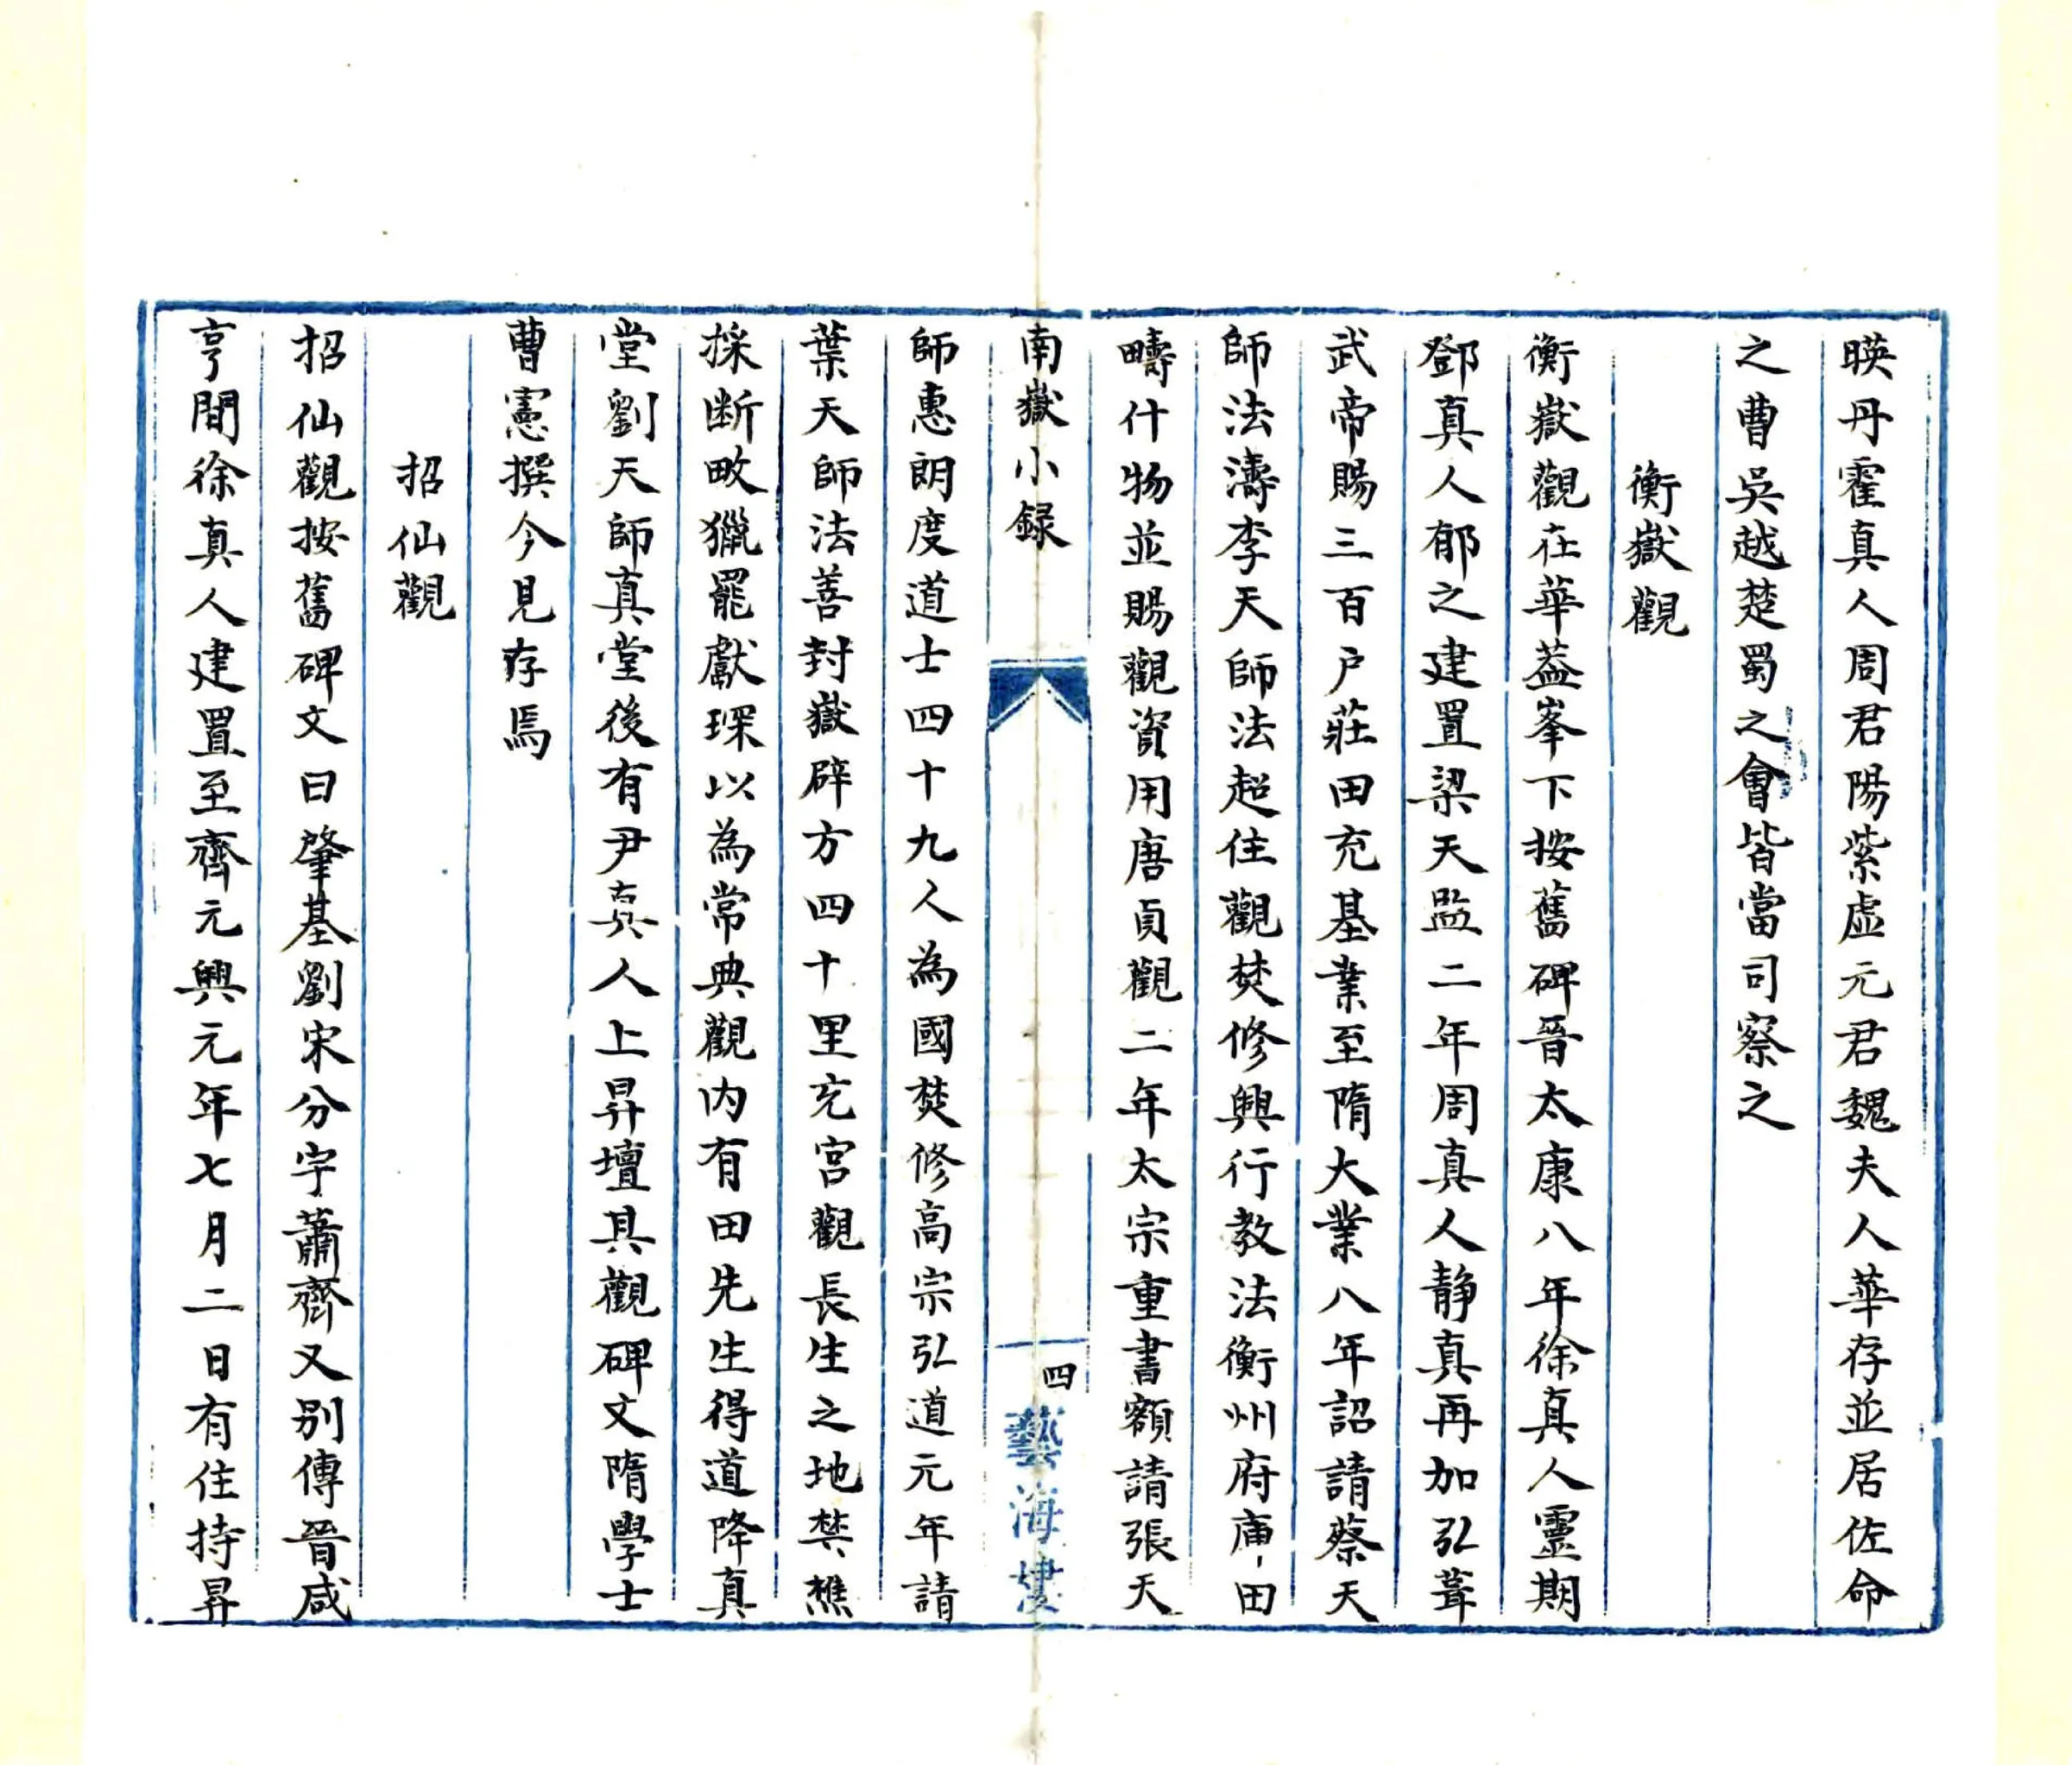 暎丹霍真人周君陽紫虛元君魏夫人華存並居佐命
之曹吳越楚蜀之會皆當司察之
衡嶽觀
衡嶽觀在華葢峯下按舊碑晉太康八年徐真人靈期
鄧真人郁之建置梁天監二年周真人静真再加弘葺
武帝賜三百户莊田充基業至隋大業八年詔請蔡天
師法濤李天師法超住觀焚修興行教法衡州府庫田
疇什物並賜觀資用唐貞觀二年太宗重書額請張天
南嶽小録
四
藝海樓
師惠朗度道士四十九人為國焚修高宗弘道元年請
葉天師法善封嶽辟方四十里充宮觀長生之地禁樵
採断畋獵罷獻琛以為常典觀内有田先生得道降真
堂劉天師真堂後有尹真人上昇壇其觀碑文隋學士
曹憲撰今見存焉
招仙觀
招仙觀按舊碑文曰肇基劉宋分宇蕭齊又别傳晉咸
亨間徐真人建置至齊元興元年七月二日有住持昇